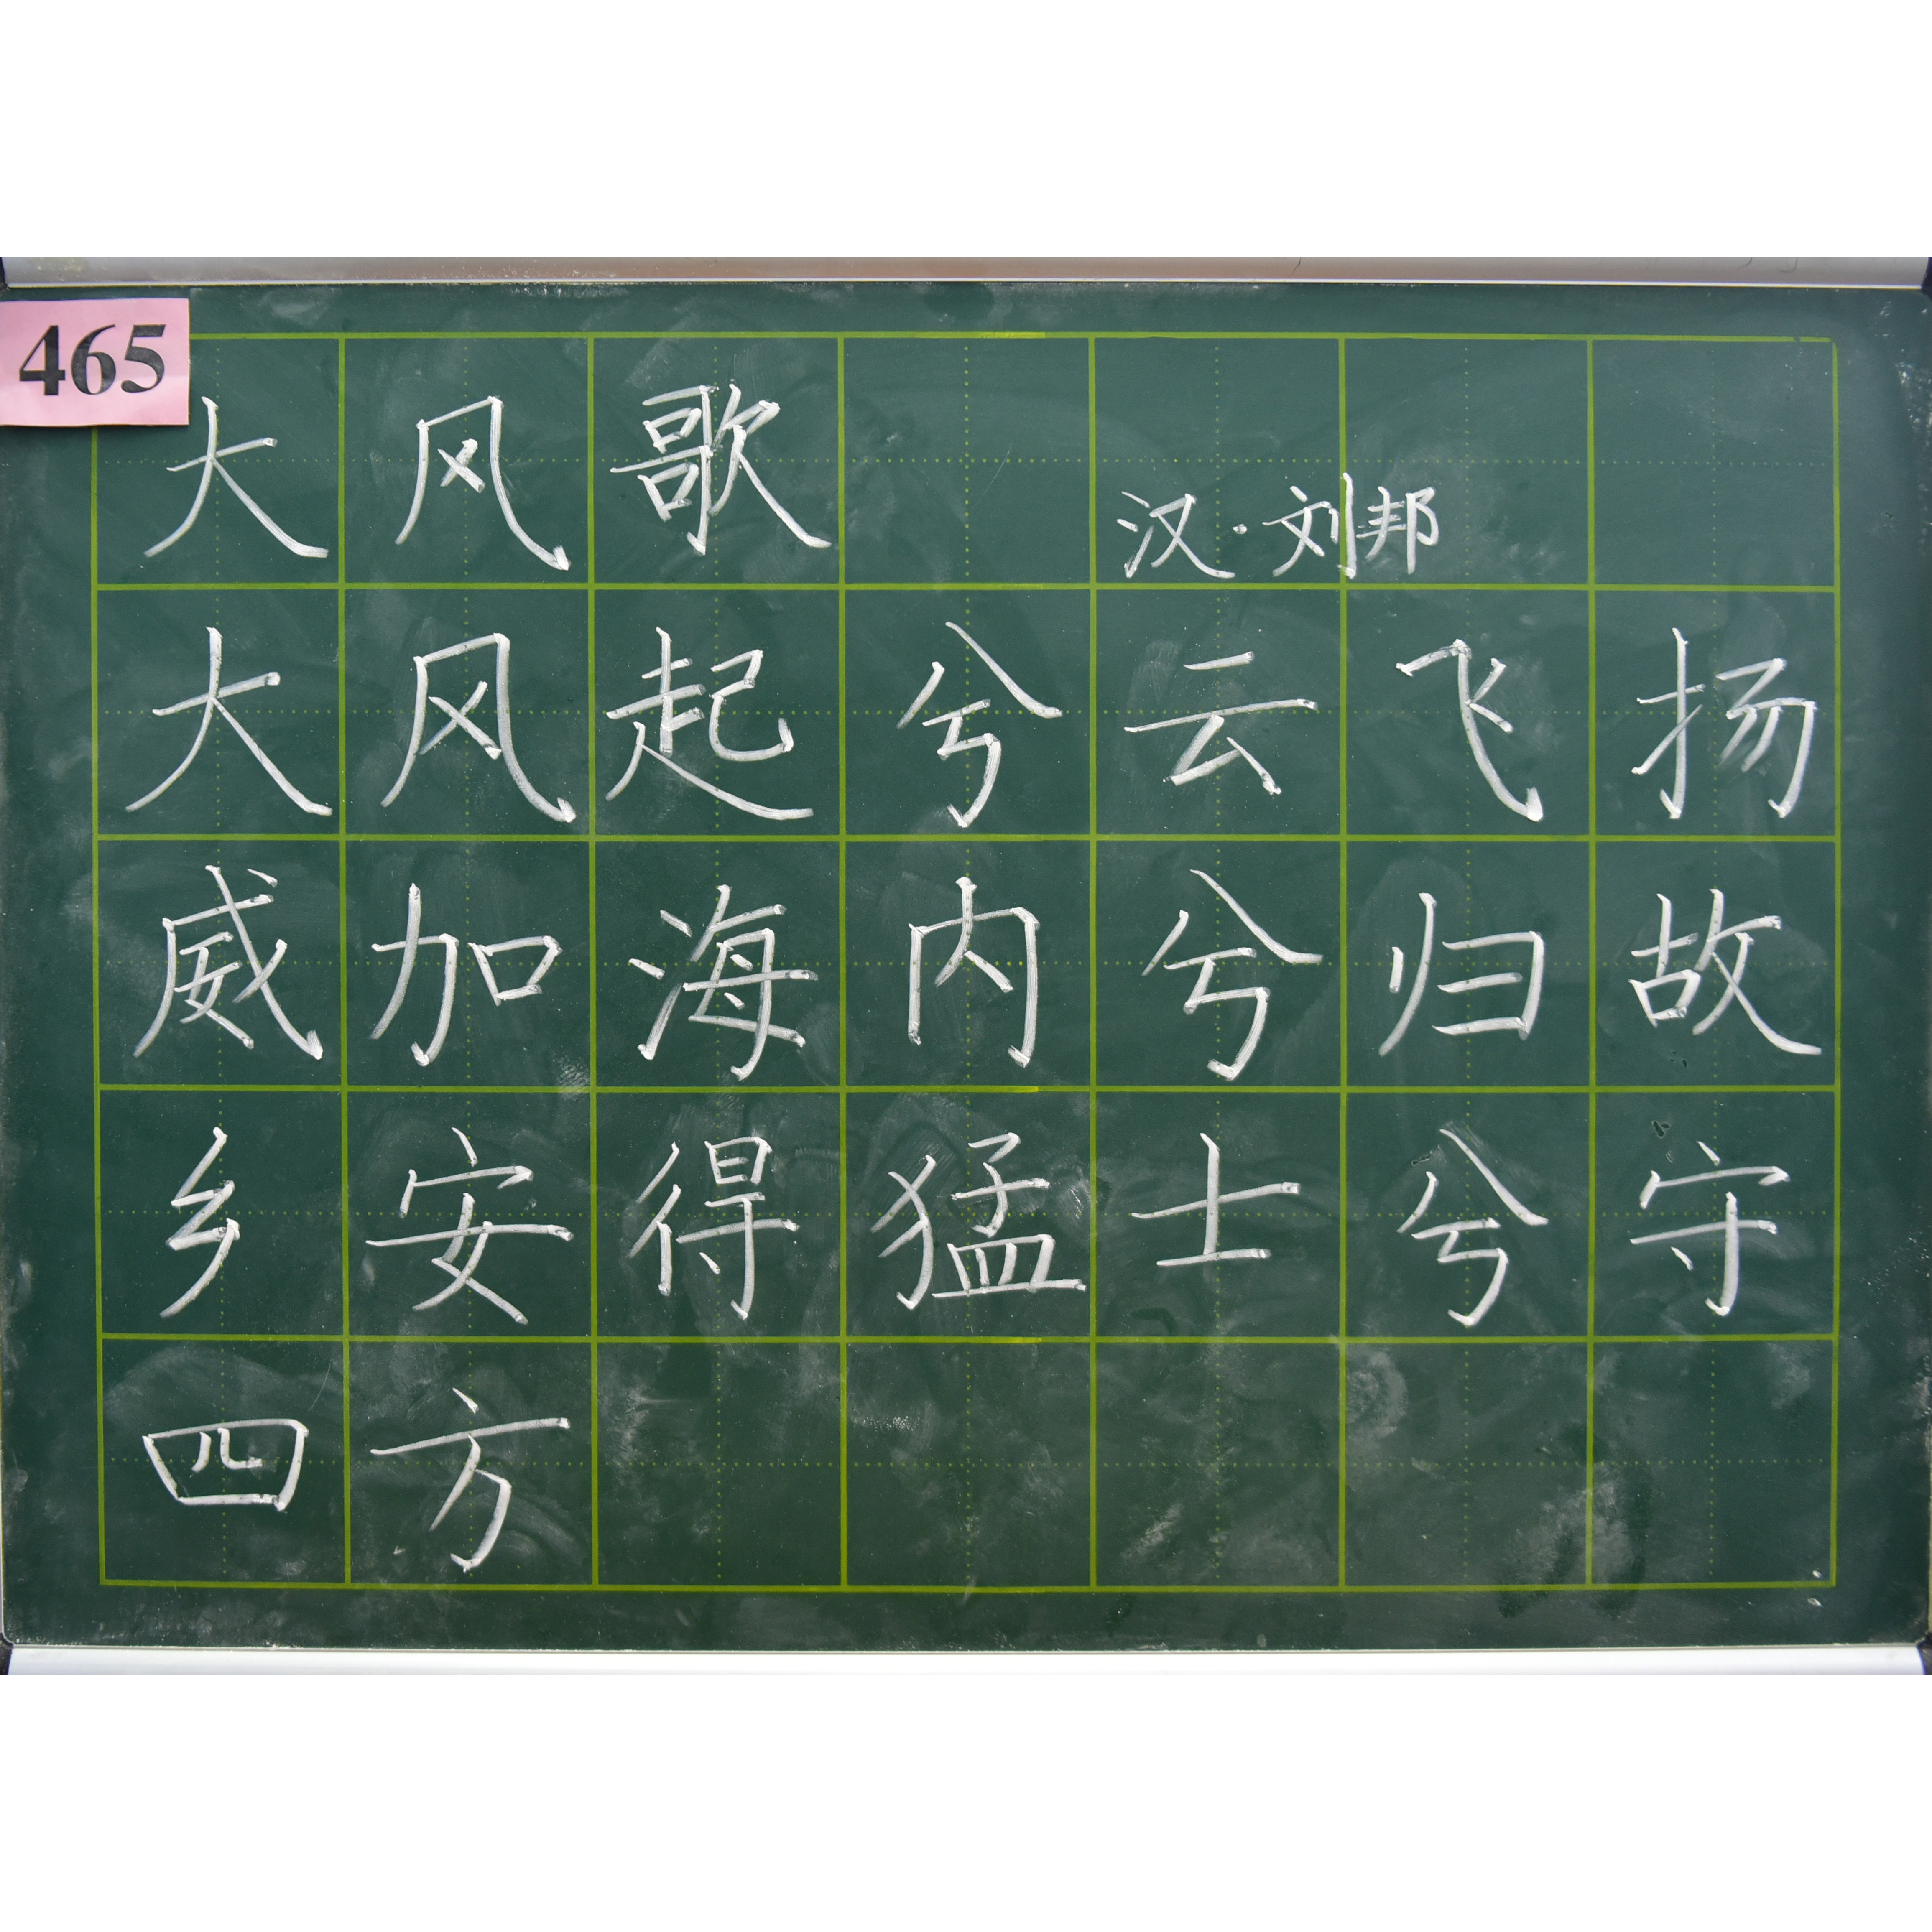 465
大风歌 汉·刘邦
大风起兮云飞扬
威加海内兮归故
乡安得猛士兮守
四方